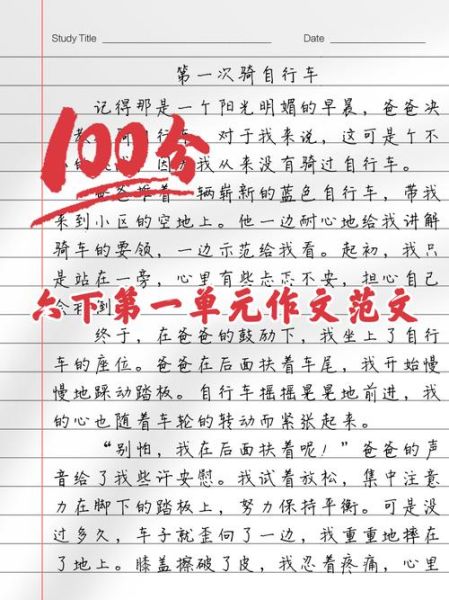 Study Title
Date
第一次骑自行车
记得那是一个阳光明媚的早晨，爸爸决
自行车。对于我来说，这可是个不
小的 因为我从来没有骑过自行车。
爸爸推着一辆崭新的蓝色自行车，带我
来到小区的空地上。他一边耐心地给我讲解
骑车的要领，一边示范给我看。起初，我只
是站在一旁，心里有些忐忑不安，担心自己
100分
六下第一单元作文范文
终于，在爸爸的鼓励下，我坐上了自行
车的座位。爸爸在后面扶着车尾，我开始慢
慢地踩动踏板。自行车摇摇晃晃地前进，我
的心也随着车轮的转动而紧张起来。
“别怕，我在后面扶着呢！”爸爸的声
音给了我些许安慰。我试着放松，集中注意
力在脚下的踏板上，努力保持平衡。可是没
过多久，车子就歪向了一边，我重重地摔在
了地上。膝盖擦破了皮，我忍着疼痛，心里